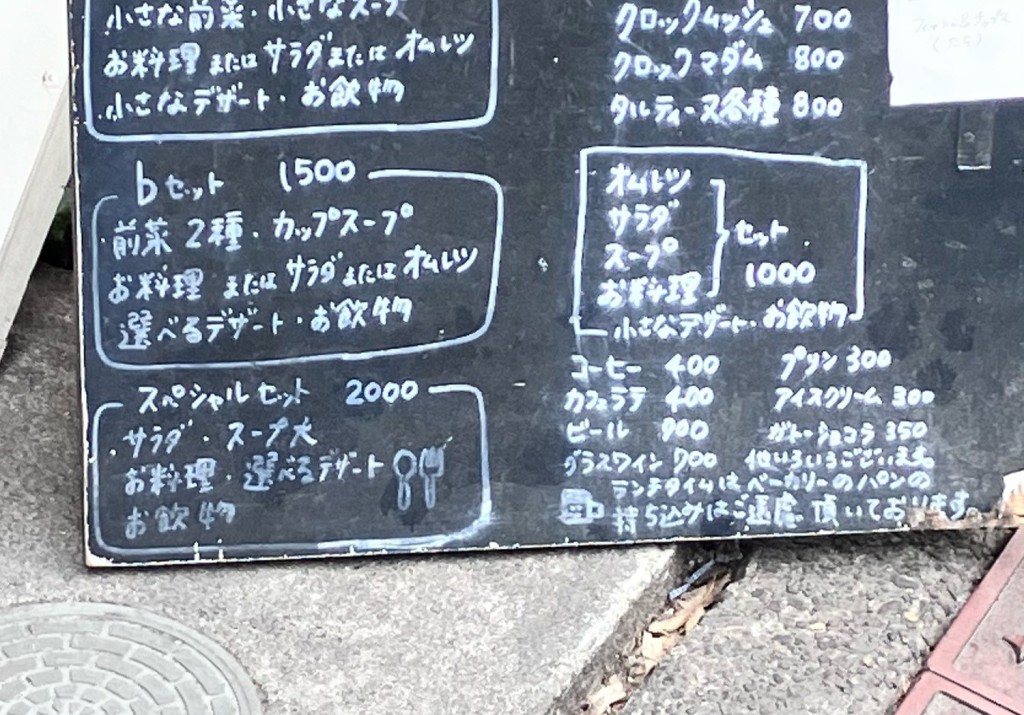 小さな前菜・小さなスープ
お料理 または サラダまたは オムレツ
小さなデザート・お飲物
bセット 1500
前菜2種・カップスープ
お料理 または サラダまたは オムレツ
選べるデザート・お飲物
スペシャルセット 2000
サラダ・スープ大
お料理・選べるデザート
お飲物
クロックムッシュ 700
クロックマダム 800
タルティーヌ各種 800
オムレツ
サラダ
スープ
お料理
セット
1000
小さなデザート・お飲物
コーヒー 400 プリン 300
カフェラテ 400 アイスクリーム 300
ビール 900 ガトーショコラ 350
グラスワイン 700 他いろいろございます。
ランチタイムはベーカリーのパンの
持ち込みはご遠慮頂いております。